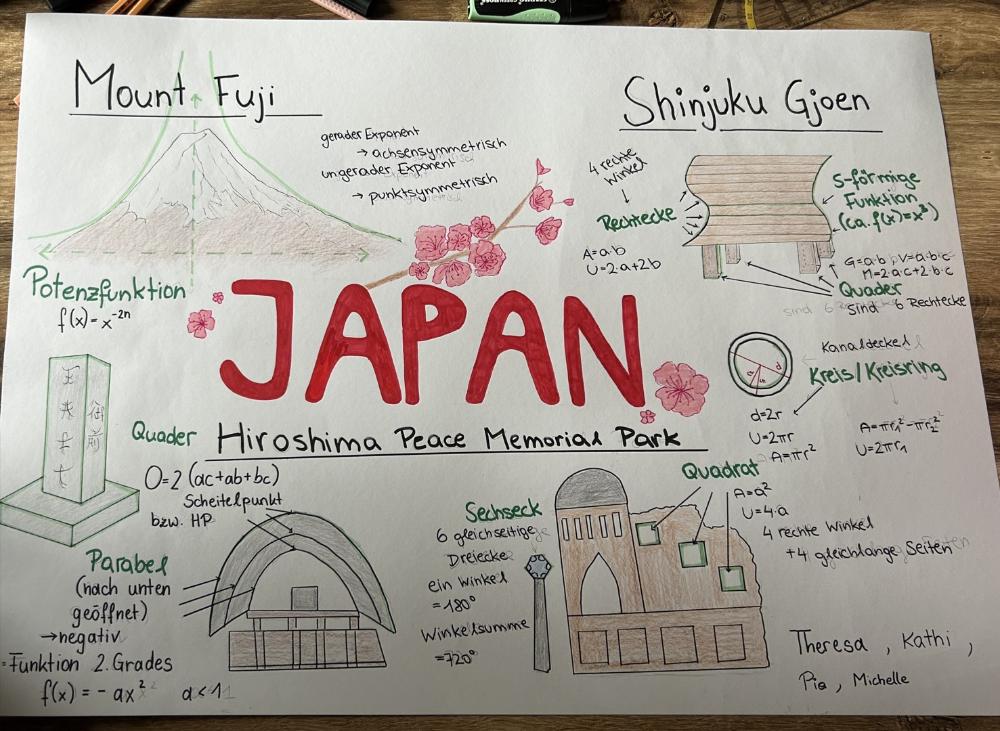 Mount Fuji
gerader Exponent
→ achsensymmetrisch
ungerader Exponent
→ punktsymmetrisch
Potenzfunktion
f(x) = x⁻²ⁿ
Shinjuku Gjoen
4 rechte
Winkel
Rechtecke
A=a·b
U=2·a+2b
S-förmige
Funktion
(ca. f(x)=x³)
G=a·b V=a·b·c
M=2·a·c+2·b·c
Quader
sind 6 Rechtecke
JAPAN
Kanaldeckel
Kreis/Kreisring
d=2r
U=2πr
A=πr²
A=πr₁²-πr₂²
U=2πr₁
Quader
O=2(ac+ab+bc)
御前
Hiroshima Peace Memorial Park
Scheitelpunkt
bzw. HP
Parabel
(nach unten
geöffnet)
→negativ
Funktion 2. Grades
f(x) = -ax² a<1
Sechseck
6 gleichseitige
Dreiecke
ein Winkel
=180°
Winkelsumme
=720°
Quadrat
A=a²
U=4·a
4 rechte Winkel
+4 gleichlange Seiten
Theresa, Kathi,
Pia, Michelle